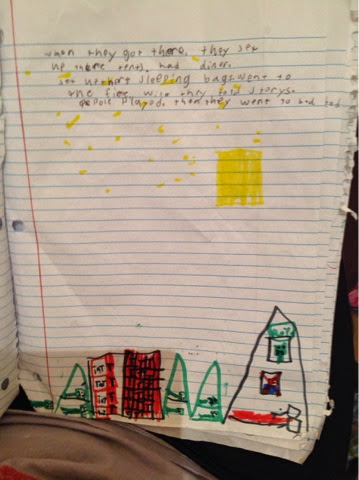 when they got there, they set
up there tents, had diner.
set up sleeping bags went to
the fire, wile they told storys.
pepole played, then they went to bed